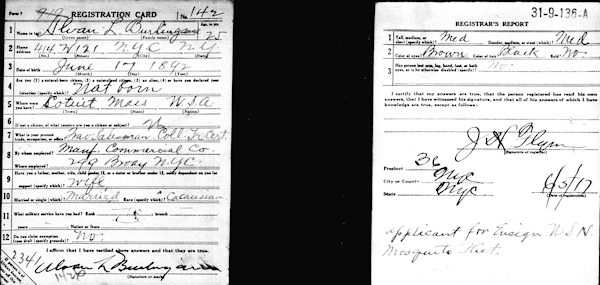 Form 1
REGISTRATION CARD No. 142
1 Name in full Alvan L. Burlingame Age, in yrs. 25
(Given name) (Family name)
2 Home address 414 W 121 N.Y.C. N.Y.
(No.) (Street) (City) (State)
3 Date of birth June 17 1892
(Month) (Day) (Year)
4 Are you (1) a natural-born citizen, (2) a naturalized citizen, (3) an alien, (4) or have you declared your intention (specify which)? Nat born
5 Where were you born? Detroit USA
(Town) (State) (Nation)
6 If not a citizen, of what country are you a citizen or subject?
7 What is your present trade, occupation, or office? Salesman Coll Tr Cert
8 By whom employed? Manf. Commercial Co.
Where employed? 299 Broay N.Y.C.
9 Have you a father, mother, wife, child under 12, or a sister or brother under 12, solely dependent on you for support (specify which)? Wife
10 Married or single (which)? Married Race (specify which)? Caucasian
11 What military service have you had? Rank branch
years Nation or State
12 Do you claim exemption from draft (specify grounds)? No.
I affirm that I have verified above answers and that they are true.
2341
Alvan L Burlingame
(Signature or mark)
31-9-136-A
REGISTRAR'S REPORT
1 Tall, medium, or short (specify which)? Med Slender, medium, or stout (which)? Med
2 Color of eyes? Brown Color of hair? Black Bald? No.
3 Has person lost arm, leg, hand, foot, or both eyes, or is he otherwise disabled (specify)? No.
I certify that my answers are true, that the person registered has read his own answers, that I have witnessed his signature, and that all of his answers of which I have knowledge are true, except as follows:
J N Flynn
(Signature of registrar)
Precinct 36
City or County NYC
State NYC
6/5/17
(Date of registration)
applicant for Ensign U.S.N.
Mosquito Fleet.